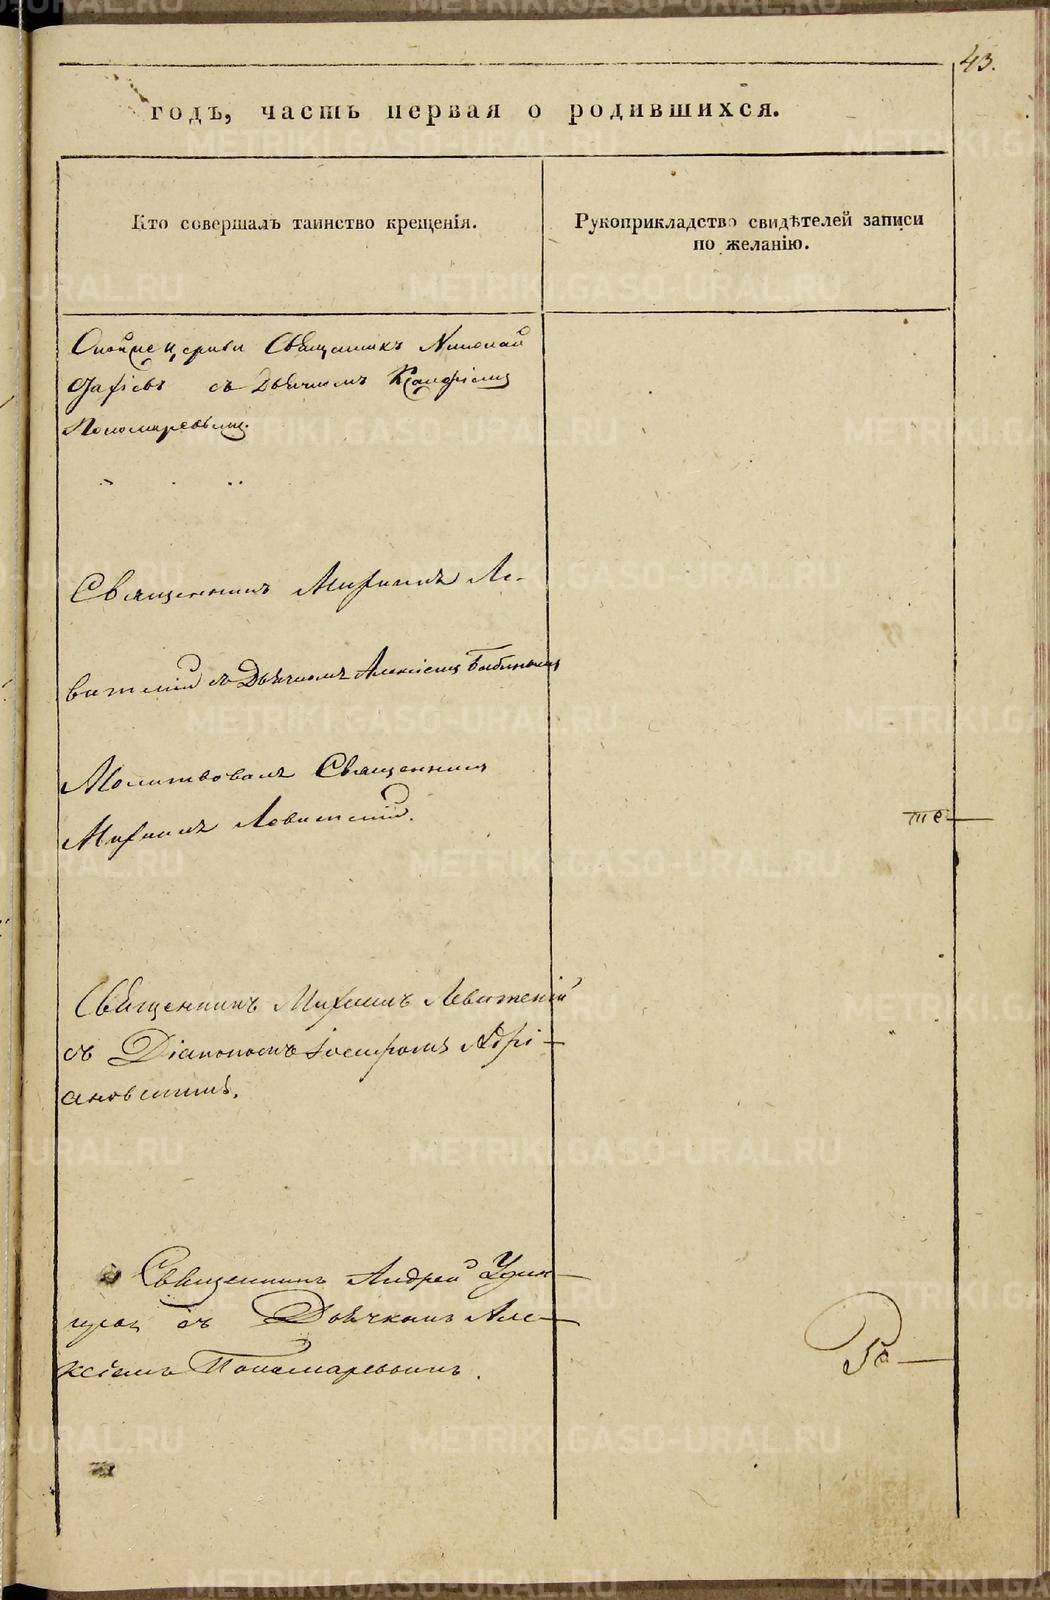 43.
годъ, часть первая о родившихся.
Кто совершалъ таинство крещенія.
Рукоприкладство свидѣтелей записи
по желанію.
церкви Священникъ Николай
съ Дьячкомъ
Пономаревымъ.
Священникъ Михаилъ Ле-
витскій съ Дьячкомъ Алексіемъ Бабинымъ
Молитвовалъ Священникъ
Михаилъ Левитскій.
те
Священникъ Михаилъ Левитскій
съ Діакономъ Іосифомъ Адрі-
ановскимъ.
Священникъ Андрей
съ Дьячкомъ Але-
ксіемъ Пономаревымъ.
METRIKI.GASO-URAL.RU